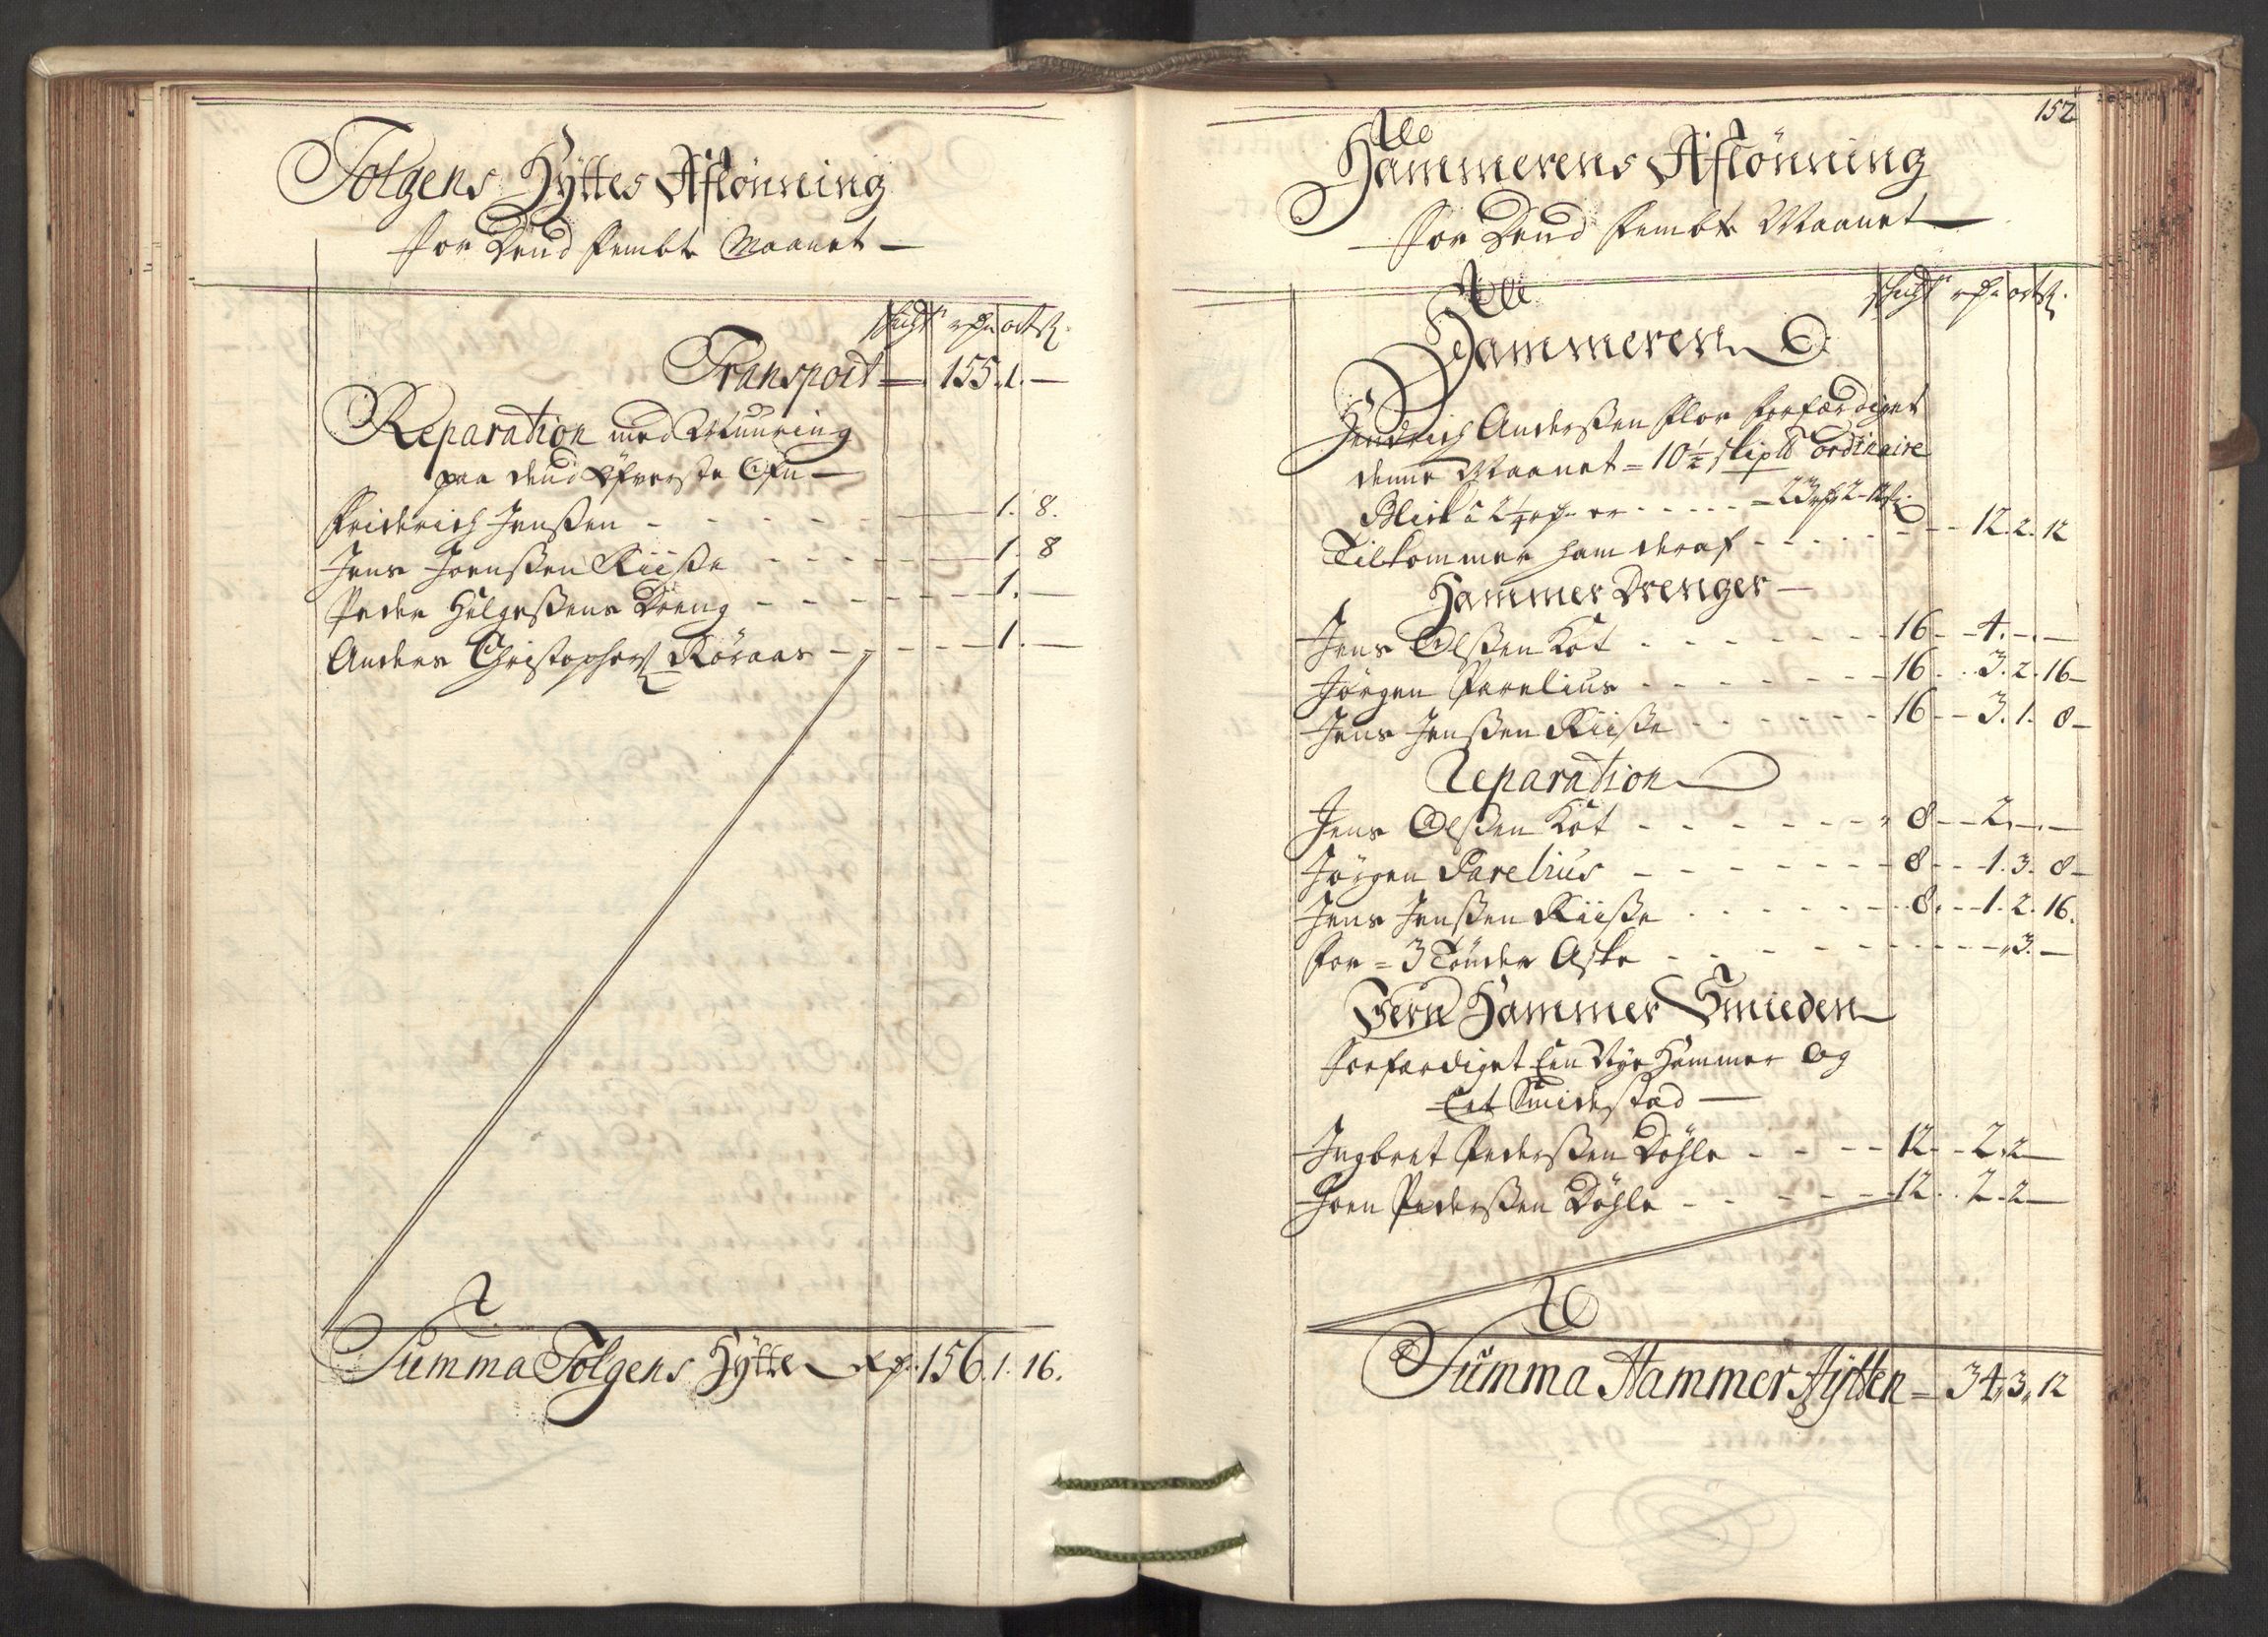 Tolgens Hÿttes Aflønning
for Dend Fembte Maanet
schicht rdr ort ß
Transport 155. 1. —
Reparation med Muuring
paa dend Øfverste Ofn
Friderich Jenßen - - - - - 1. 8.
Jens Joenßen Riiße - - - - - 1. 8
Peder Helgeßens Dreng - - - - - 1. —
Anders Christophers Röraas - - - - - 1. —
Summa Tolgens Hÿtte rdr. 156. 1. 16.
152
Hammerens Aflønning
for Dend Fembte Maanet
schicht rdr ort ß.
Hammeren
Hendrich Anderßen Flor forfærdiget
denne Maanet = 10½ skip℔ ordinaire
Blick à 2¼ rdr er - - - - = 23 rdr 2 - 12 ß.
Tilkommer ham deraf - - - - - 12. 2. 12
Hammer Drenger
Jens Olßen Kot - - - - - 16 - - 4. - . —
Jörgen Parelius - - - - - 16 . . 3. 2. 16 —
Jens Jenßen Riiße - - - - - 16 - - 3. 1. 8 —
Reparation
Jens Olßen Kot - - - - - 8 - - 2. - . —
Jörgen Parelius - - - - - 8 - - 1. 3. 8 —
Jens Jenßen Riiße - - - - - 8. - - 1. 2. 16.
For = 3 Tönder Aske - - - - - 3. —
Jern Hammer Smieden
Forfærdiget Een Nye Hammer og
Eet Smidestad
Ingbret Pederßen Döhle - - - - 12 - - 2. 2 —
Joen Pederßen Döhle - - - - - 12 . . 2. 2 —
Summa Hammer Hÿtten = 34. 3. 12